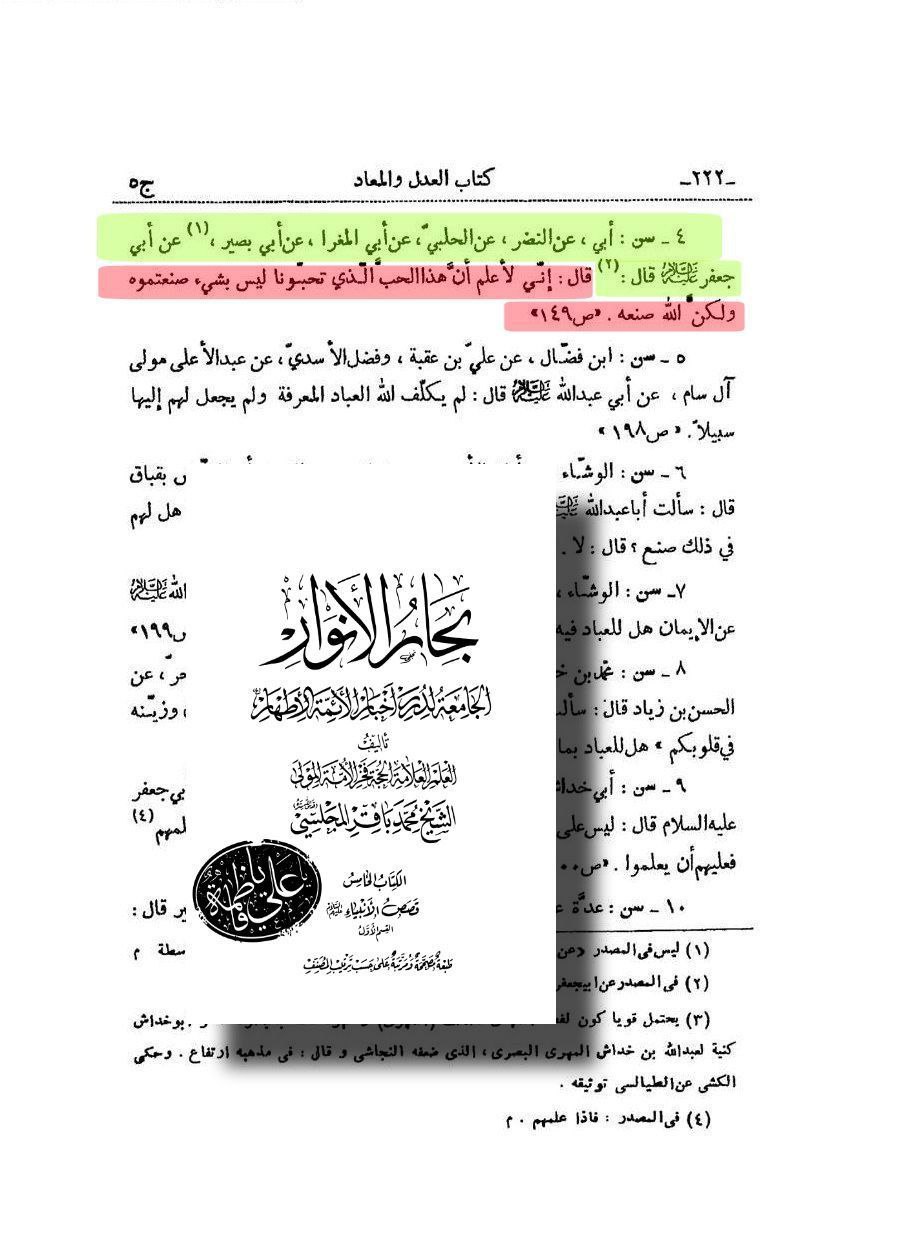 -٢٢٢- كتاب العدل والمعاد ج٥
٤ ـ سن : أبي ، عن النضر ، عن الحلبيّ ، عن أبي المغرا ، عن أبي بصير ،(١) عن أبي
جعفر عليه السلام قال :(٢) قال : إنّي لأعلم أنَّ هذا الحبَّ الّذي تحبّونا ليس بشيء صنعتموه
ولكنَّ الله صنعه . «ص١٤٩»
٥ ـ سن : ابن فضّال ، عن عليّ بن عقبة ، وفضل الأسديّ ، عن عبدالأعلى مولى
آل سام ، عن أبي عبدالله عليه السلام قال : لم يكلّف الله العباد المعرفة ولم يجعل لهم إليها
سبيلاً . «ص١٩٨»
٦ ـ سن : الوشّاء بقباق
قال : سألت أباعبدالله عليه السلام هل لهم
في ذلك صنع ؟ قال : لا .
٧ـ سن : الوشّاء ، الله عليه السلام
عن الإيمان هل للعباد فيه ص١٩٩»
٨ ـ سن : محمّد بن ، عن
الحسن بن زياد قال : وزيّنه
في قلوبكم » هل للعباد بما
٩ ـ سن : أبي خداش بي جعفر
عليه السلام قال : ليس على (٤)
فعليهم أن يعلموا .
١٠ ـ سن : عدَّة ير قال :
(١) ليس فى المصدر «عن سطة م
(٢) فى المصدر عن ابيجعفر
(٣) يحتمل قويا كون بوخداش
كنية لعبدالله بن خداش المهرى البصرى ، الذى ضعفه النجاشى و قال : فى مذهبه ارتفاع . وحكى
الكشى عن الطيالسى توثيقه .
(٤) فى المصدر : فاذا علمهم . م
بحار الأنوار
الجامعة لدرر أخبار الأئمة الأطهار
تأليف
العلم العلامة الحجة فخر الأمة المولى
الشيخ محمد باقر المجلسي
الكتاب الخامس
قصص الأنبياء عليهم السلام
القسم الأول
طبعة مصححة ومرتبة على حسب ترتيب المصنف
يا علي
فاطمة